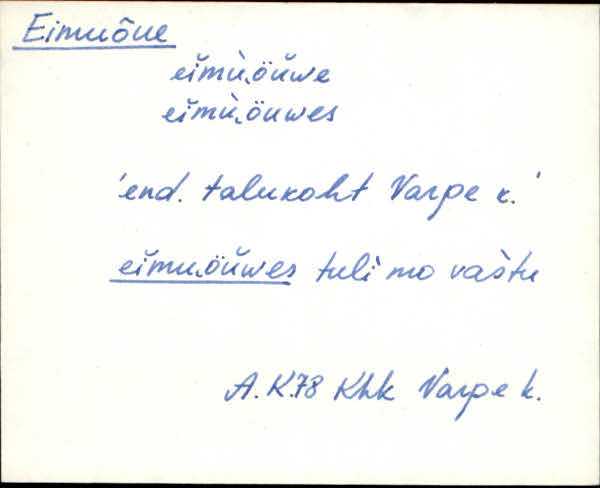 Eimuõue
eĭmù͔öŭwe
eĭmù͔öuwes
'end. talukoht Varpe k.'
eĭmu͔öŭwes tuĺi mo vaštu
A. K.78 Khk Varpe k.